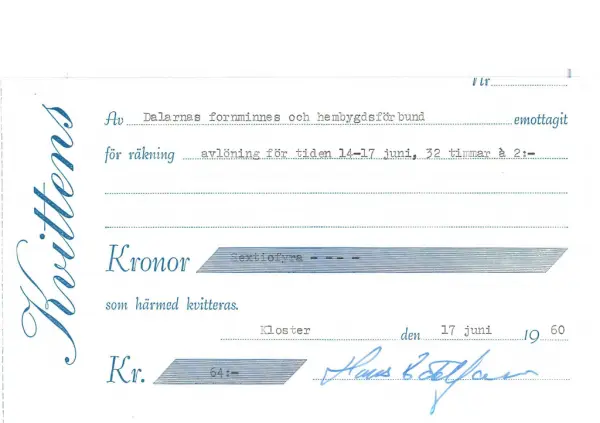 Kvittens
Nr
Av Dalarnas fornminnes och hembygdsförbund emottagit
för räkning avlöning för tiden 14-17 juni, 32 timmar à 2:-
Kronor Sextiofyra - - - -
som härmed kvitteras.
Kloster den 17 juni 1960
Kr. 64:- Hans